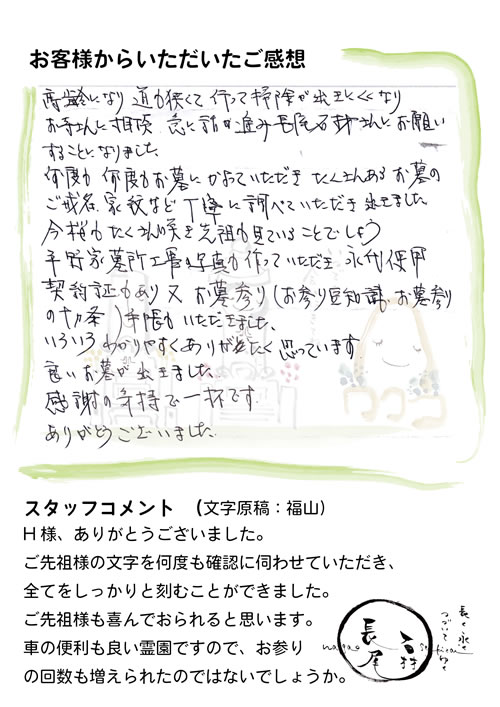 お客様からいただいたご感想
高齢になり 道も狭くて 行って掃除が出来にくくなり
お寺さんに相談 急に話が進み 長尾石材さんにお願い
することになりました。
何度も何度もお墓にかよっていただき たくさんあるお墓の
ご戒名、家紋など 丁寧に調べていただき 出来ました
今 桜もたくさん咲き 先祖も見ていることでしょう
平野家墓所工事の写真も作っていただき 永代使用
契約証もあり 又 お墓参り(お参り豆知識、お墓参り
の十カ条)手帳もいただきました、
いろいろ わかりやすく ありがたく思っています
良いお墓が出来ました。
感謝の気持で一杯です
ありがとうございました。
スタッフコメント (文字原稿:福山)
H様、ありがとうございました。
ご先祖様の文字を何度も確認に伺わせていただき、
全てをしっかりと刻むことができました。
ご先祖様も喜んでおられると思います。
車の便利も良い霊園ですので、お参り
の回数も増えられたのではないでしょうか。
長尾
nagao